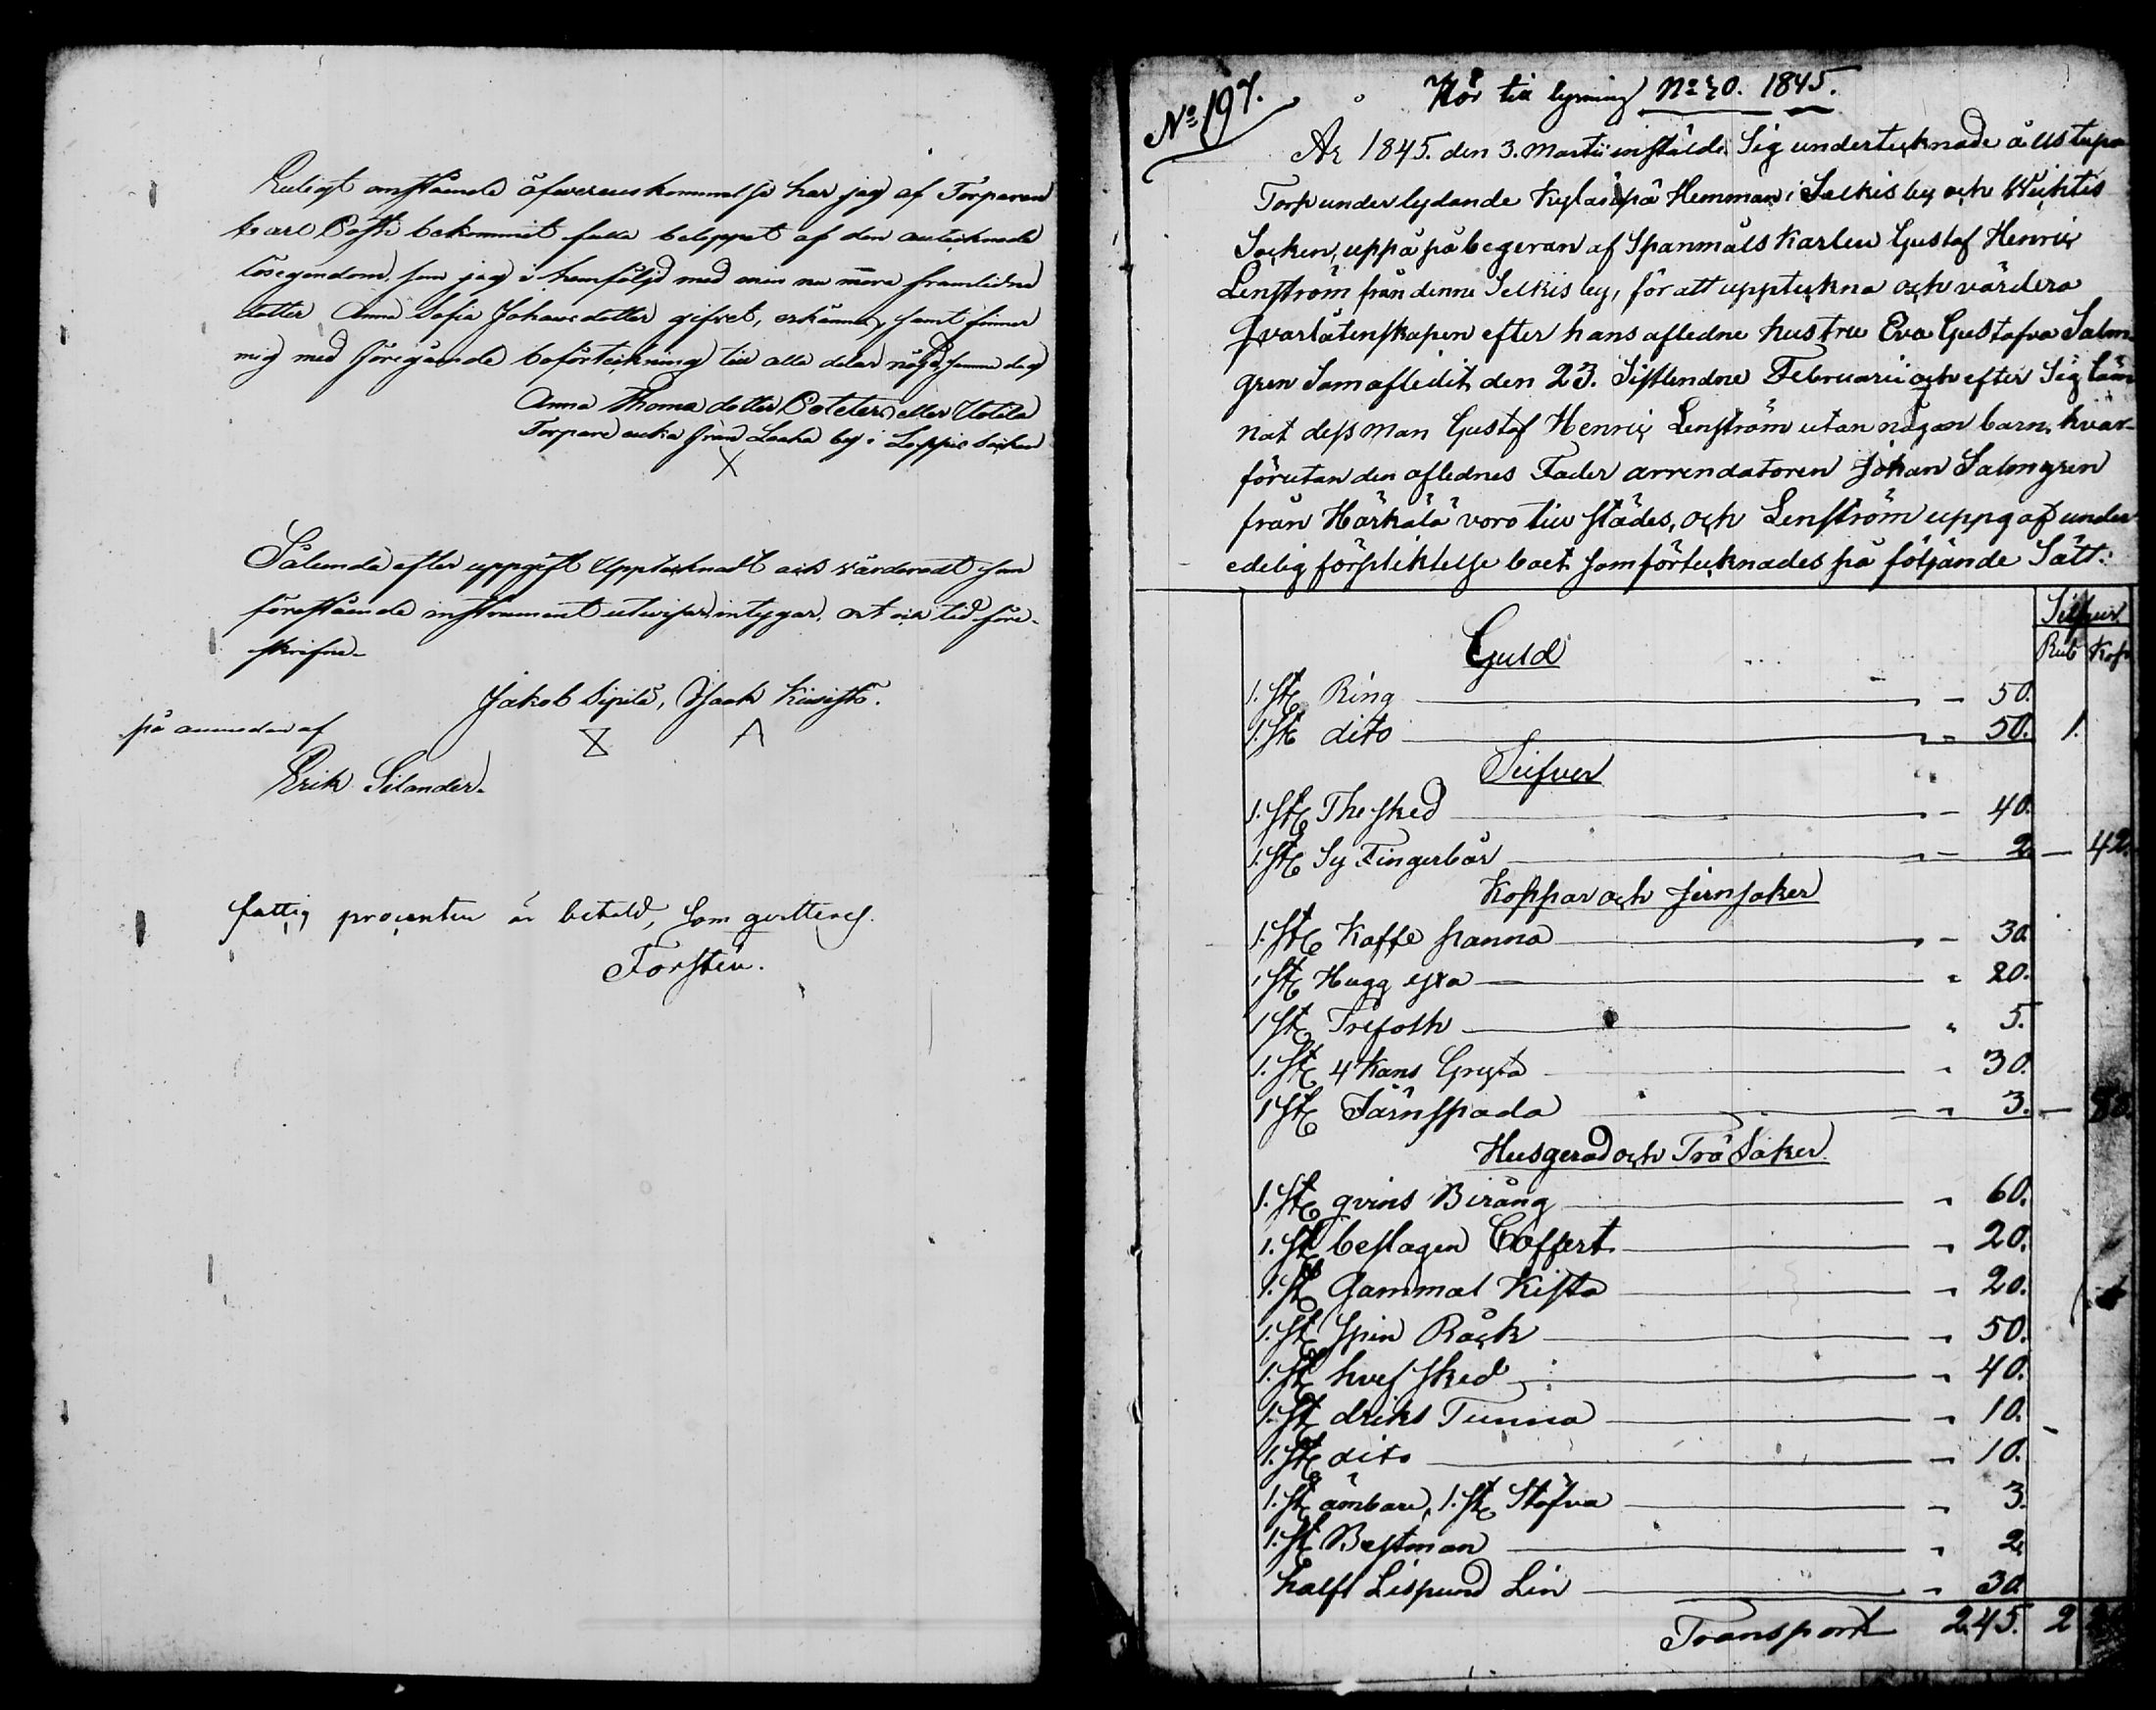 Enligt anstående öfverenskommelse har jag af Torparen
Carl Poski bekommit fulla beloppet af den antecknade
lösegendom, som jag i hemföljd med min nu mera framlidna
dotter Anna Sofia Johansdotter gifvet, erkänner, samt finner
mig med föregående boförteckning till alla delar nögd, samma dag
Anna Thomædotter eller Uotila
Torpare enka från Lauha by i Loppis Socken
X
Sålunda efter uppgift Upptecknadt och värderadt som
förestående instrument utvisar, intygar, ort och tid före-
skrifne.
Jakob Sipilä, Isaak Kivistö.
på anmodan af
Erik Silander.
fattig procenten är betald, som qvitteras.
Forstén.
No 197.
Hör till lysning No 20. 1845.
År 1845. den 3. Martii instälde Sig undertecknade å Ustupa
Torp underlydande Kylänpä Hemman i Selkis by och Wichtis
Socken, uppå på begeran af Spanmåls Karlen Gustaf Henric
Lenström från denne Selkis by, för att uppteckna och värdera
Qvarlåtenskapen efter hans aflidne hustru Eva Gustafva Salm-
gren Som aflidit den 23. Sistlendne Februarii och efter Sig läm
nat dess man Gustaf Henric Lenström utan någon barn, hvar-
förutan den aflednes Fader arrendatoren Johan Salmgren
från Härkälä voro till städes, och Lenström uppgaf under
edelig förpliktelse boet som förtecknades på följande Sätt:
Silfver
Rub Kop
Guld
1. St Ring — 50.
1. St dito — 50. 1.
Silfver
1. St The sked — 40.
1. St Sy Fingerbår — 2. — 42.
Koppar och Jernsaker
1. St Kaffe panna — 30.
1 St Hugg yxa — 20.
1 St Trefoth — 5.
1. St 4 Kans Gryta — 30.
1 St Järnspada — 3. — 88.
Husgerad och Trä Saker
1. St qvins Birång — 60.
1. St beslagen Coffert — 20.
1. St Gammal Kista — 20.
1. St Spin Råck — 50.
1. St hvef sked — 40.
1. St driks Tunna — 10.
1. St dito — 10.
1. St ämbare, 1. St Stäfva — 3.
1. St Bestman — 2.
halft Lispund Lin — 30.
Transport 245. 2